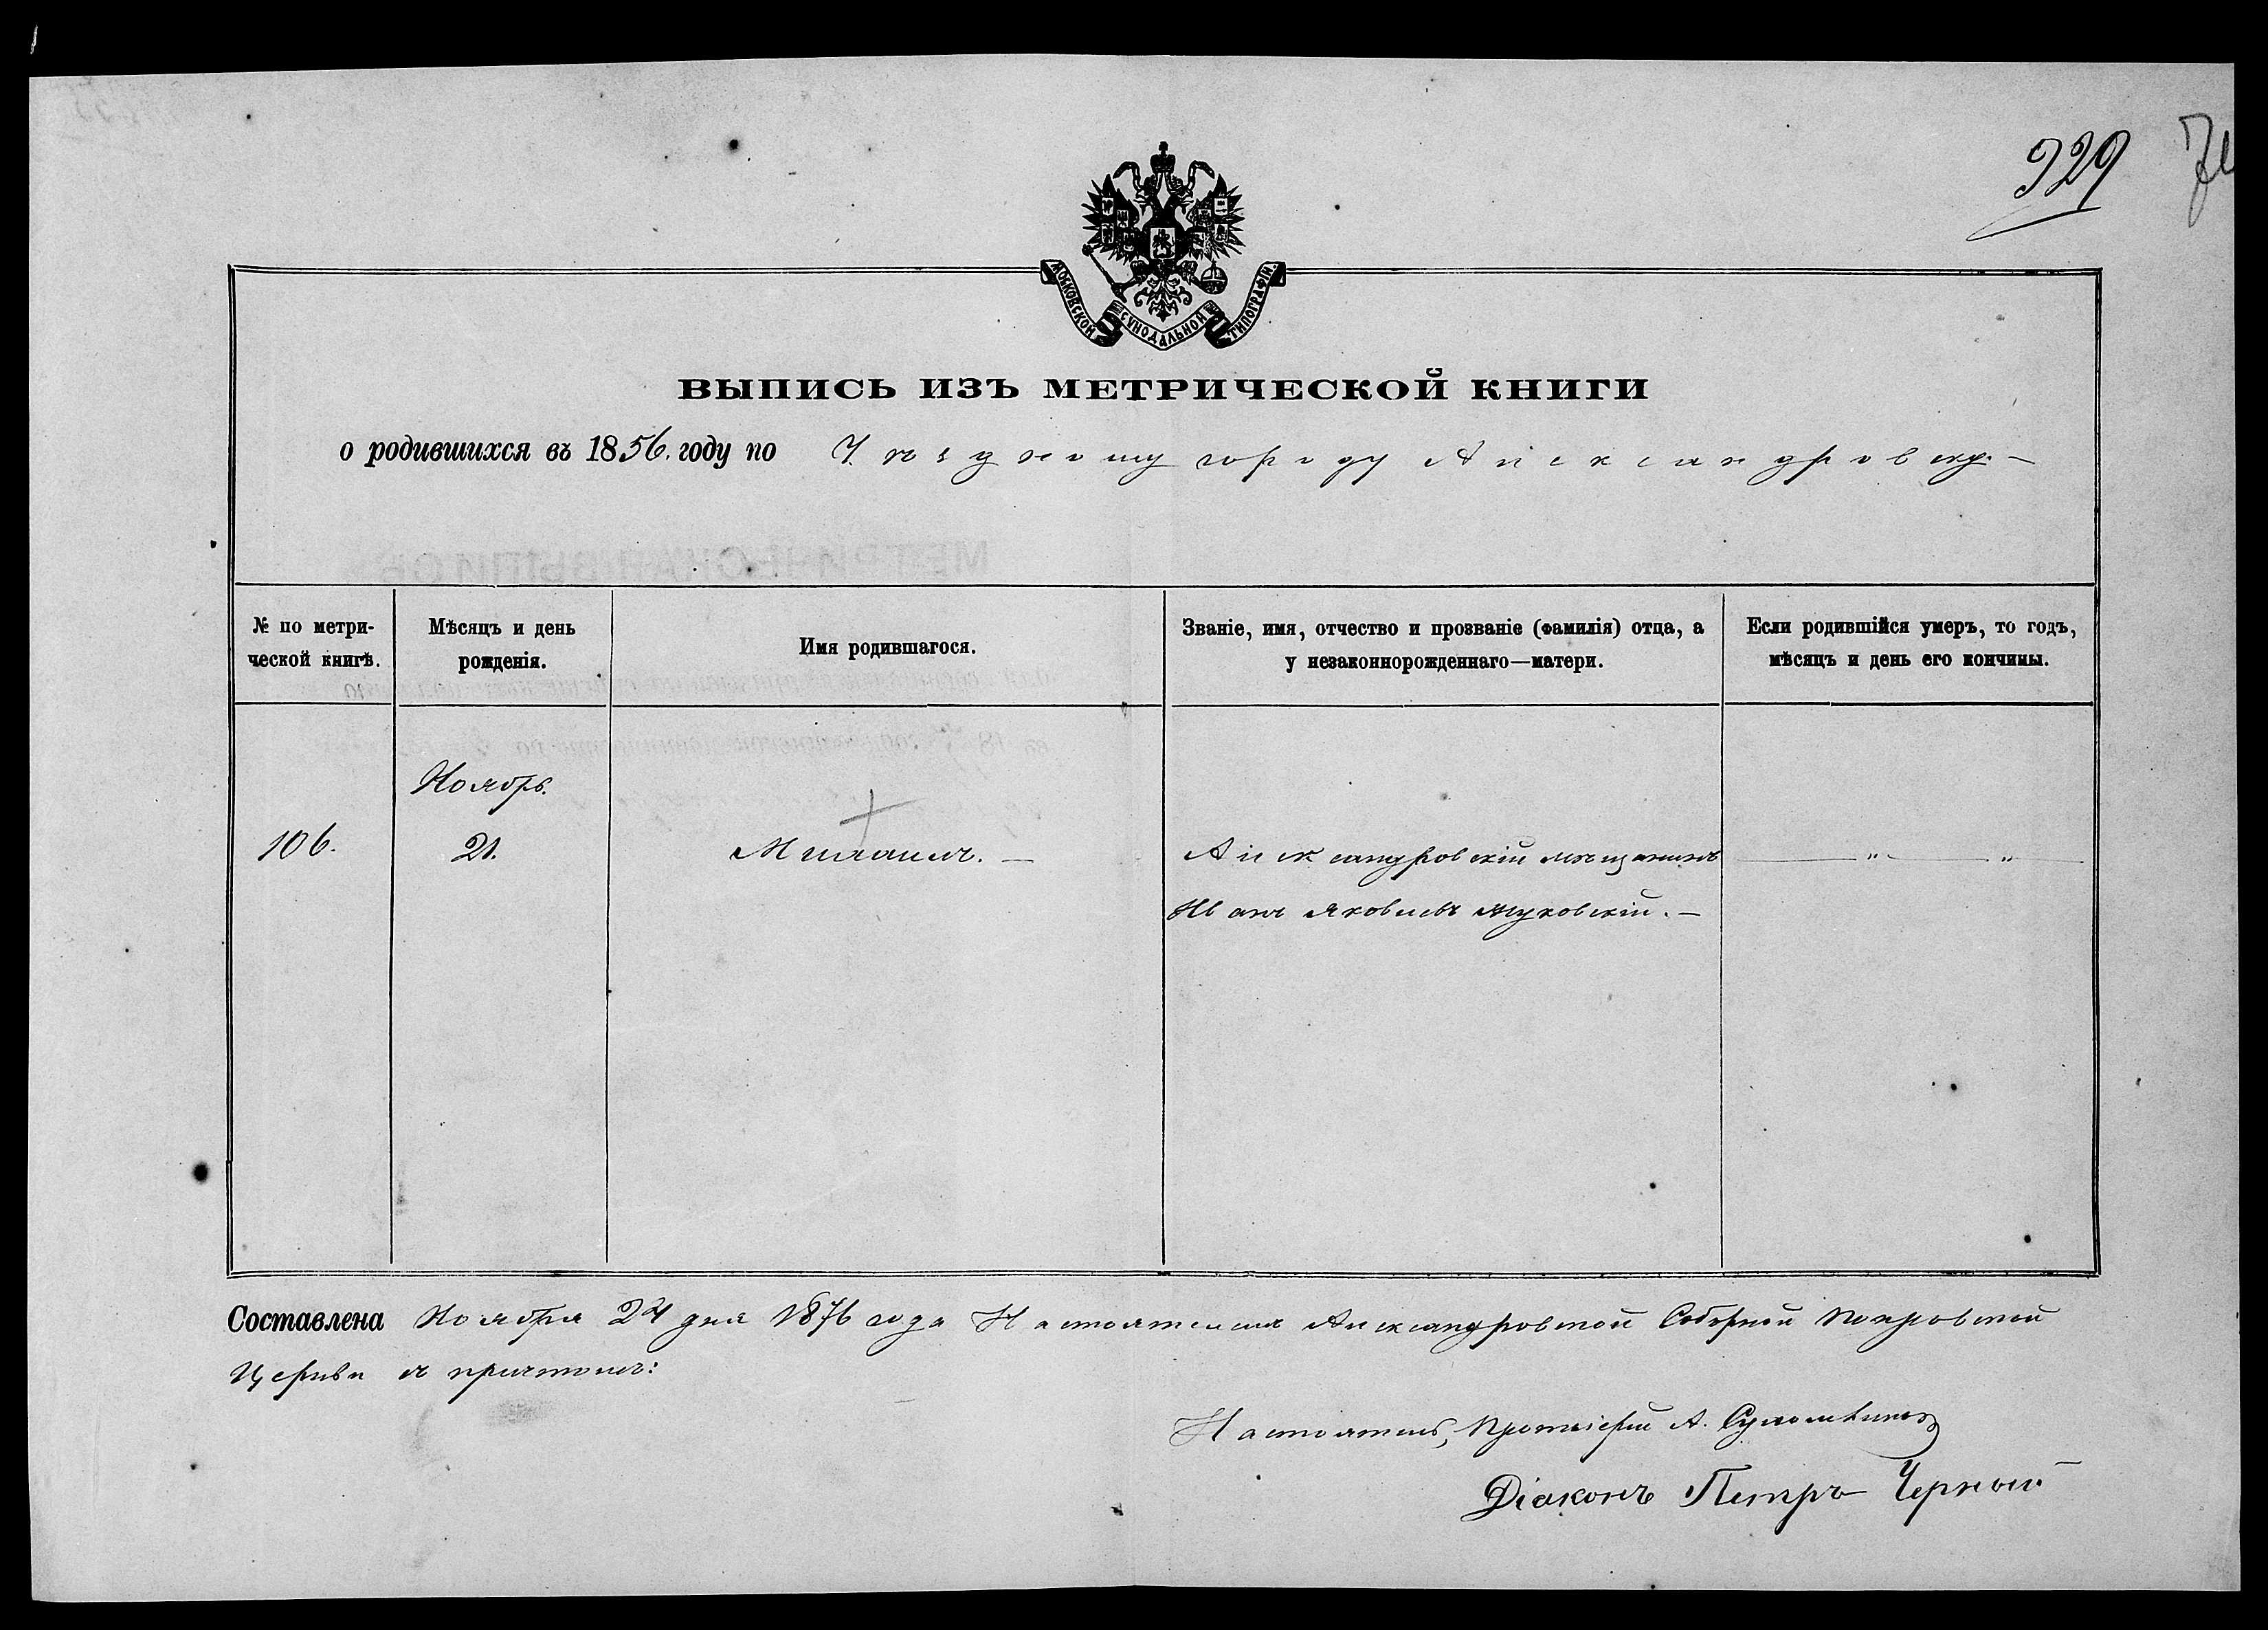 929
МОСКОВСКОЙ СѴНОДАЛЬНОЙ ТИПОГРАФІИ.
ВЫПИСЬ ИЗЪ МЕТРИЧЕСКОЙ КНИГИ
о родившихся въ 1856. году по Уѣздному городу Александровску. —
№ по метри-
ческой книгѣ.
Мѣсяцъ и день
рожденія.
Имя родившагося.
Званіе, имя, отчество и прозваніе (фамилія) отца, а
у незаконнорожденнаго—матери.
Если родившійся умеръ, то годъ,
мѣсяцъ и день его кончины.
Ноябрь.
106.
21.
Михаилъ. —
Александровскій мѣщанинъ
Иванъ Яковлевъ Жуковскій. —
— " — " —
Составлена Ноября 24 дня 1876 года Настоятелемъ Александровской Соборной Покровской
Церкви съ причтомъ:
Настоятель, Протоіерей А.
Діаконъ Петръ Черный